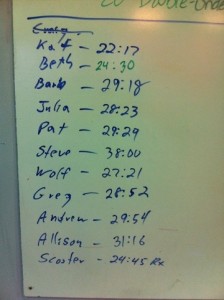 20 Double-Unders
Kat - 22:17
Beth - 24:30
Barb - 29:18
Julia - 28:23
Pat - 29:29
Steve - 38:00
Wolf - 27:21
Greg - 28:52
Andrew - 29:54
Allison - 31:16
Scooter - 24:45 Rx